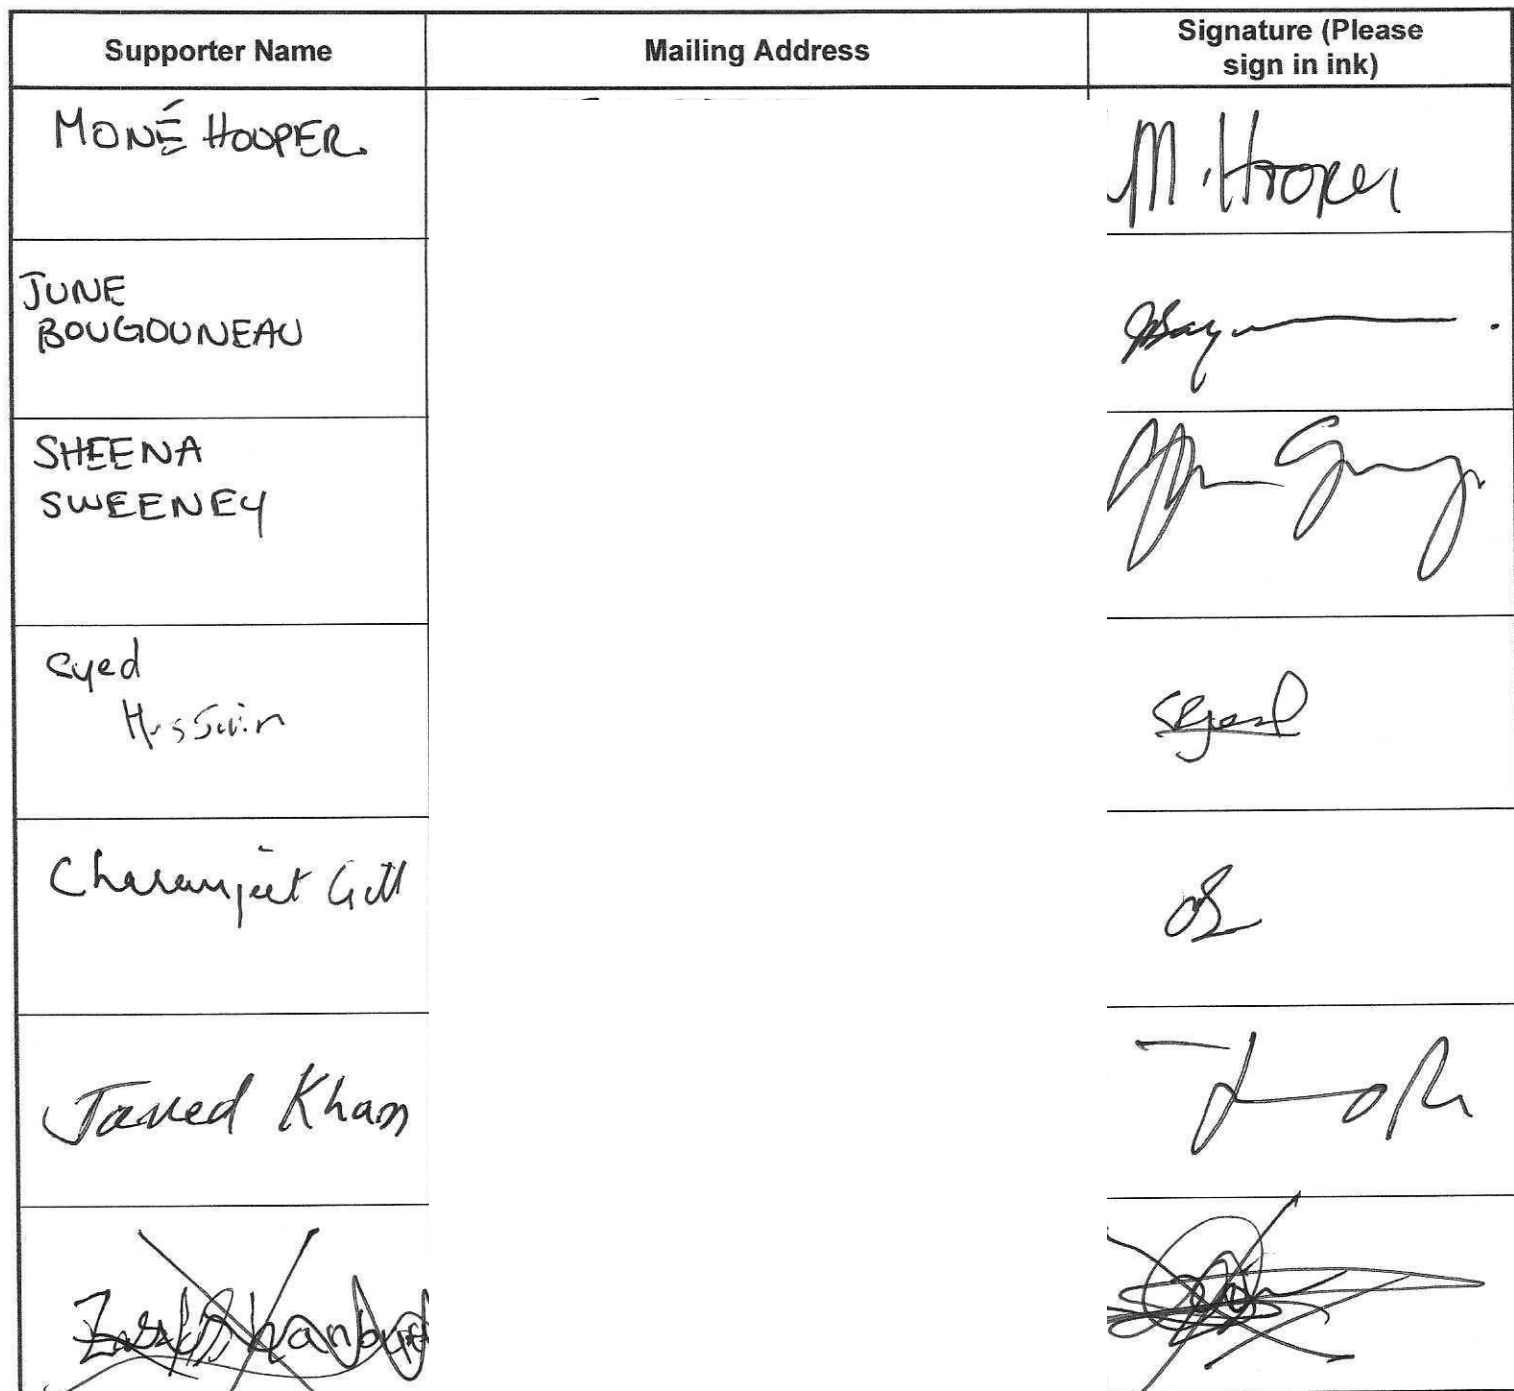 Supporter Name Mailing Address Signature (Please sign in ink)
MONÉ HOOPER. M. Hooper
JUNE
BOUGOUNEAU
SHEENA
SWEENEY
Syed
Hussain
Syed
Charanjeet Gill
Javed Khan